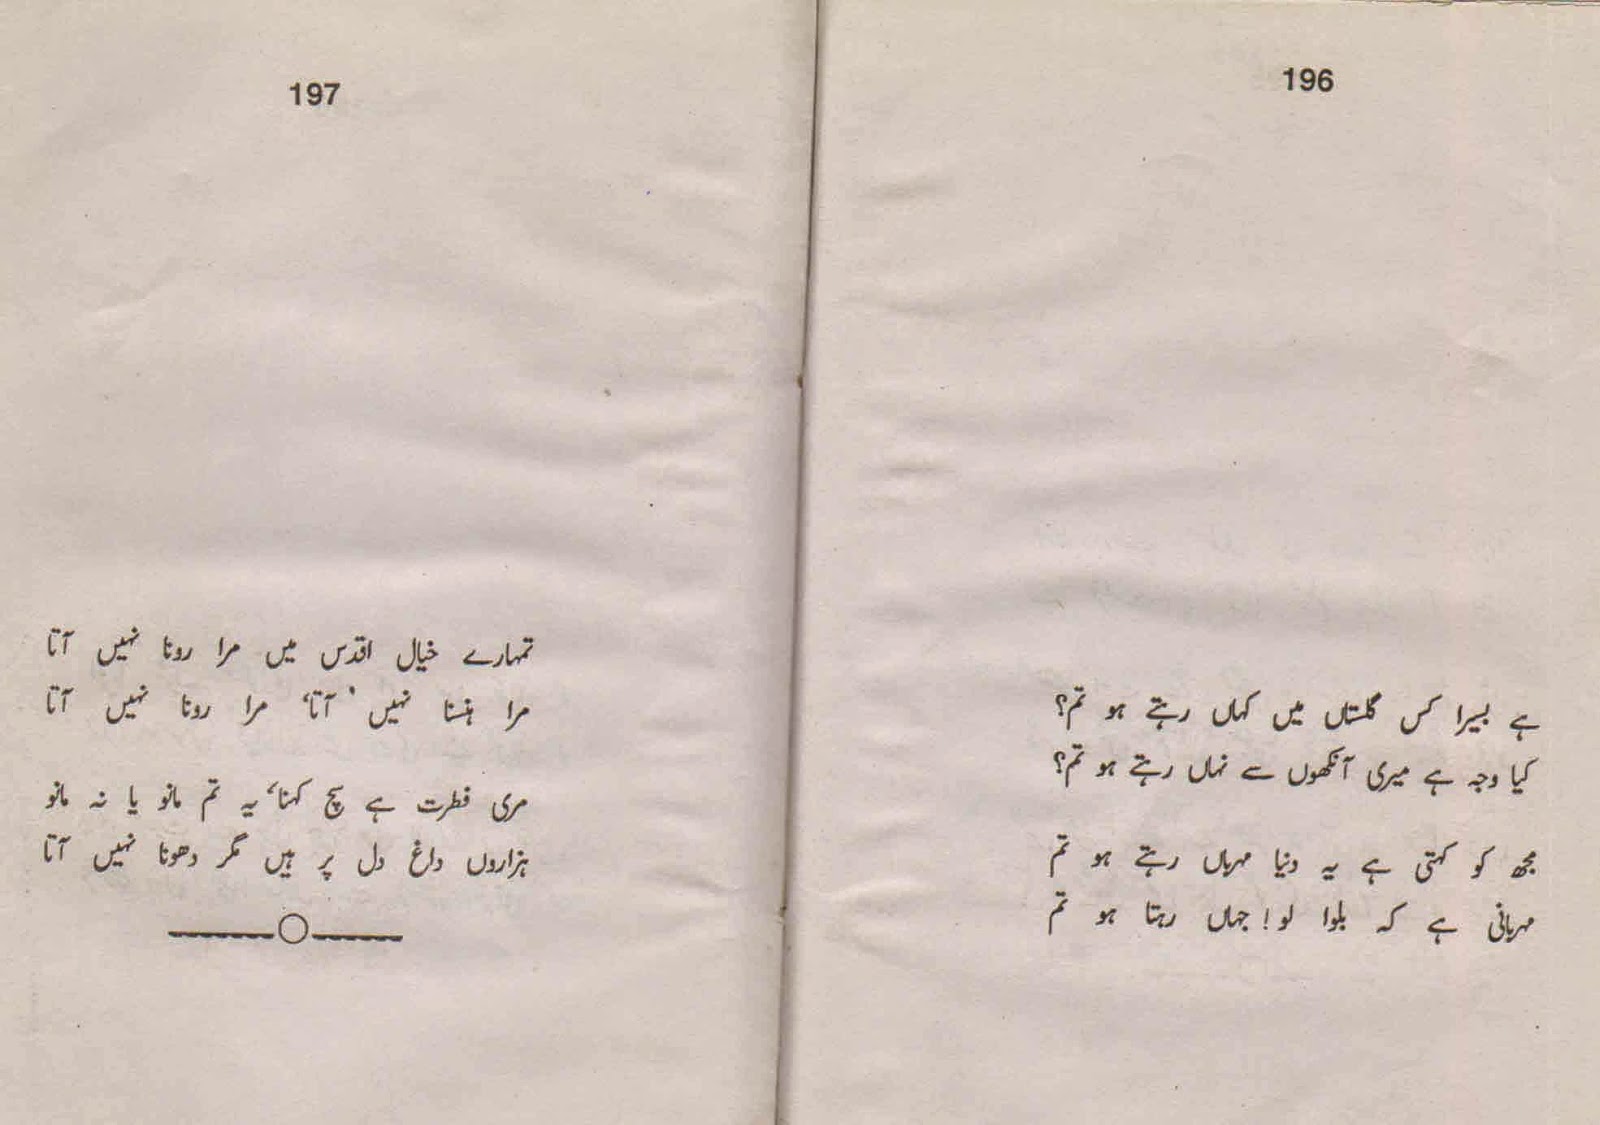 196
ہے بسیرا کس گلستاں میں کہاں رہتے ہو تم؟
کیا وجہ ہے میری آنکھوں سے نہاں رہتے ہو تم؟
مجھ کو کہتی ہے یہ دنیا مہرباں رہتے ہو تم
مہربانی ہے کہ بلوا لو! جہاں رہتا ہو تم
197
تمہارے خیال اقدس میں مرا رونا نہیں آتا
مرا ہنسنا نہیں ’آتا‘ مرا رونا نہیں آتا
مری فطرت ہے سچ کہنا‘ یہ تم مانو یا نہ مانو
ہزاروں داغ دل پر ہیں مگر دھونا نہیں آتا